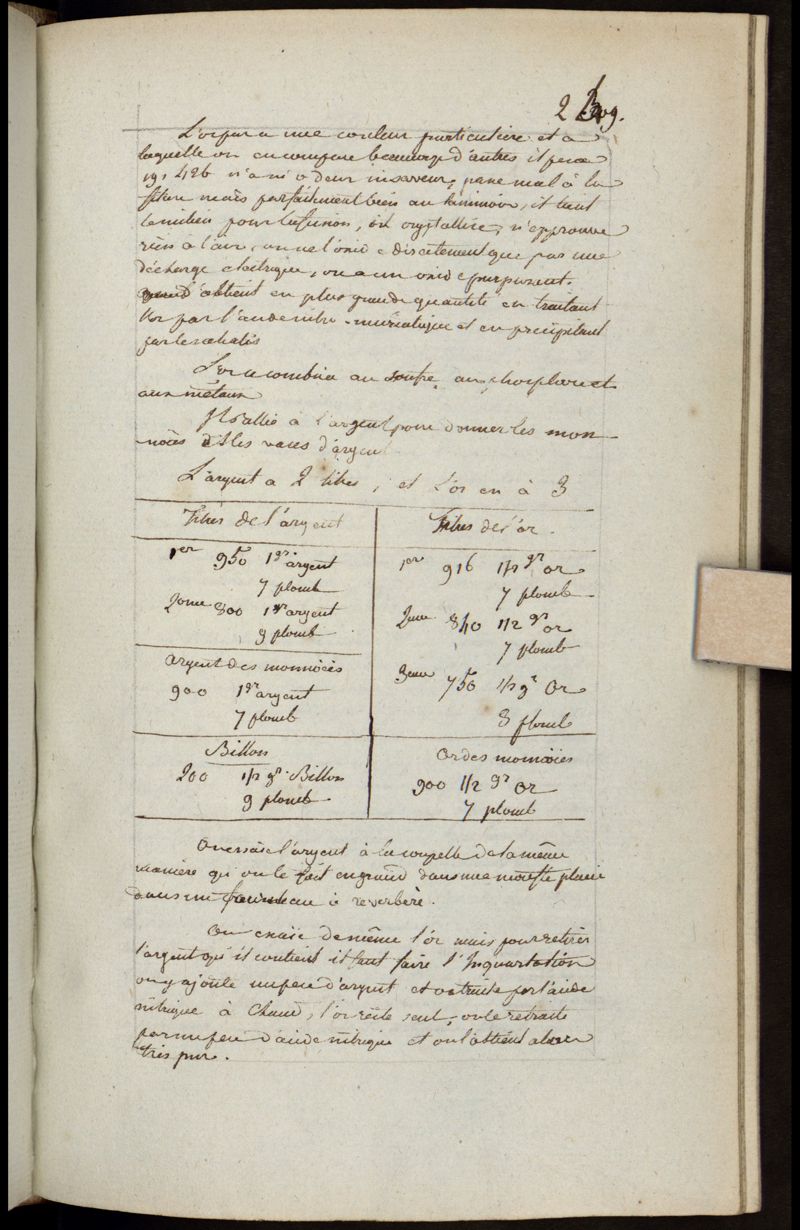 209.
L'or pur a une couleur particuliere et a
laquelle on en compare beaucoup d'autres il pese
19,426 n'a ni odeur ni saveur, passe mal à la
filiere mais parfaitement bien au laminoir, il tient
le milieu pour la fusion, il crystallise, n'eprouve
rien à l'air, on ne l'oxide directement que par une
décharge electrique, on a un oxide purpurent.
quand l'obtient en plus grande quantité en traitant
l'or par l'acide nitro-muriatique et en precipitant
par les alcalis
L'or se combine au soufre au phosphore et
aux métaux
Il s'allie à l'argent pour donner les mon-
-noies et les vases d'argent
L'argent a 2 titres, et l'or en à 3
Titres de l'argent
1er 950 1gr. argent
7 plomb
2eme 800 1gr argent
9 plomb
argent des monnoies
900 1gr argent
7 plomb
Billon
200 1/2 gr. Billon
9 plomb
Titres de l'or.
1er 916 1/2 gr or
7 plomb
2eme 840 1/2 gr or
7 plomb
3eme 750 1/2 gr Or
8 plomb
Or des monnoies
900 1/2 gr Or
7 plomb
On essaie l'argent à la coupelle de la même
maniere qu'on le fait en grand dans une moufle placée
dans un fourneau à reverbère.
On essaïe de même l'or mais pour retirer
l'argent qu'il contient il faut faire l'Inquartation
on y ajoute un peu d'argent et on traite par l'acide
nitrique à chaud, l'or reste seul, on le retraite
par un peu d'acide nitrique et on l'obtient alors
très pur.